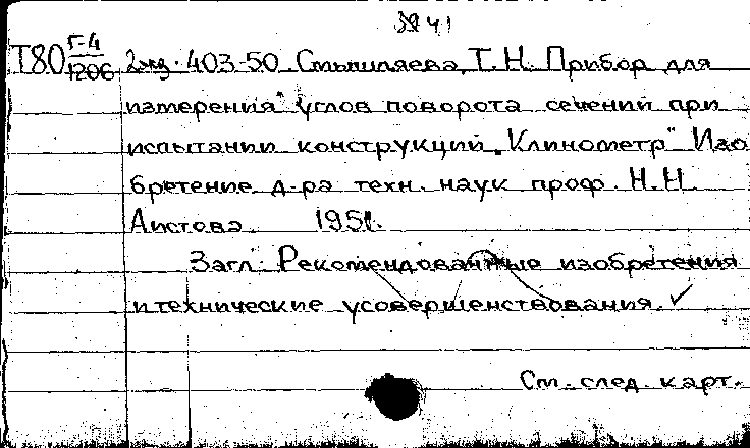 41
Т80 Г-4/1206 2 экз. 403-50. Смышляева, Т.Н. Прибор для
измерения углов поворота сечений при
испытании конструкций „Клинометр" Изо
бретение д-ра техн. наук проф. Н.Н.
Аистова 1951.
Загл: Рекомендованные изобретения
и технические усовершенствования.
См. след. карт.